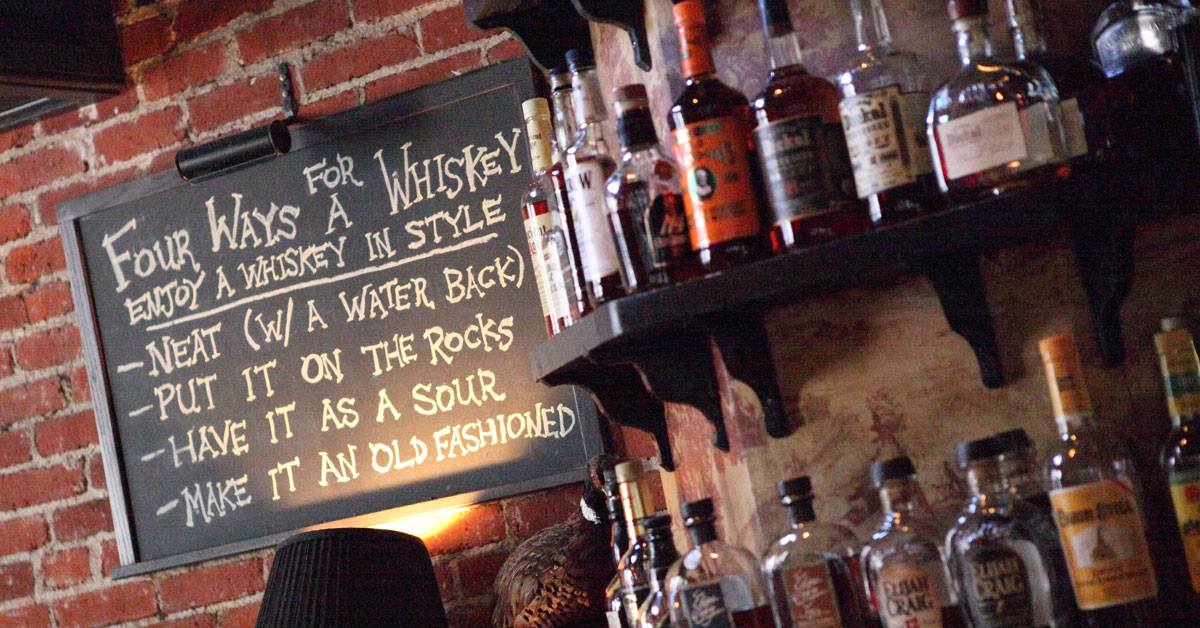 FOUR WAYS FOR A WHISKEY
ENJOY A WHISKEY IN STYLE
-NEAT (W/ A WATER BACK)
-PUT IT ON THE ROCKS
-HAVE IT AS A SOUR
-MAKE IT AN OLD FASHIONED
Dickel
Dickel
ELIJAH
CRAIG
ELIJAH
CRAIG